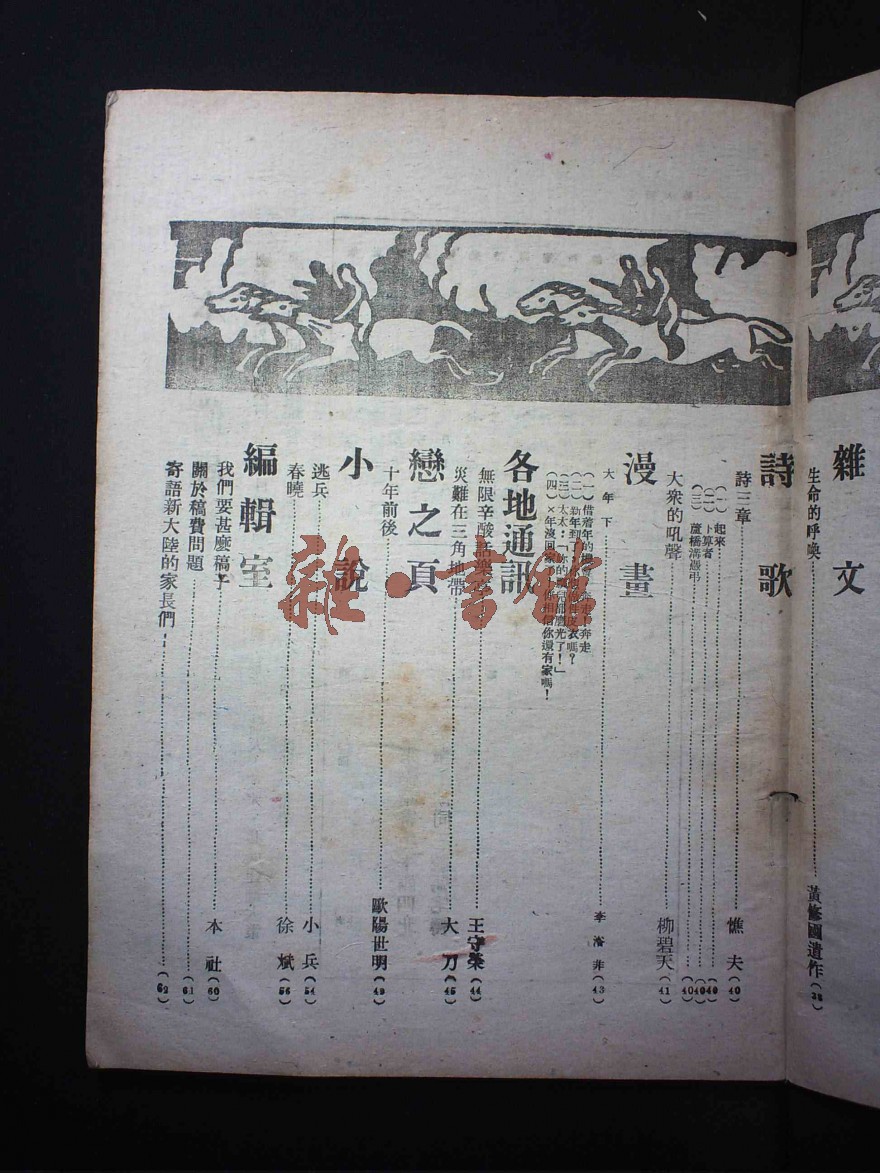 雜文
生命的呼喚 黃修國遺作
詩歌
詩三章 憔夫(40)
(一)起來 40
(二)卜算者 40
(三)蘆橋溝憑弔 (40
大衆的吼聲 柳碧天(41)
漫畫
大年下 李 菲(43)
(一)借着年的 奔走!奔走
(二)新年到了 皮衣嗎?
(三)太太:「你的 光了!」
(四)×年沒回家了 相信你還有家嗎!
各地通訊
無限辛酸話樂 王守榮(44)
災難在三角地帶 大刀(45)
戀之頁
十年前後 歐陽世明(49)
小說
逃兵 小兵(54)
春曉 徐斌(56)
編輯室
我們要甚麼稿子 本社(60)
關於稿費問題 (61)
寄語新大陸的家長們 (62)
雜·書館